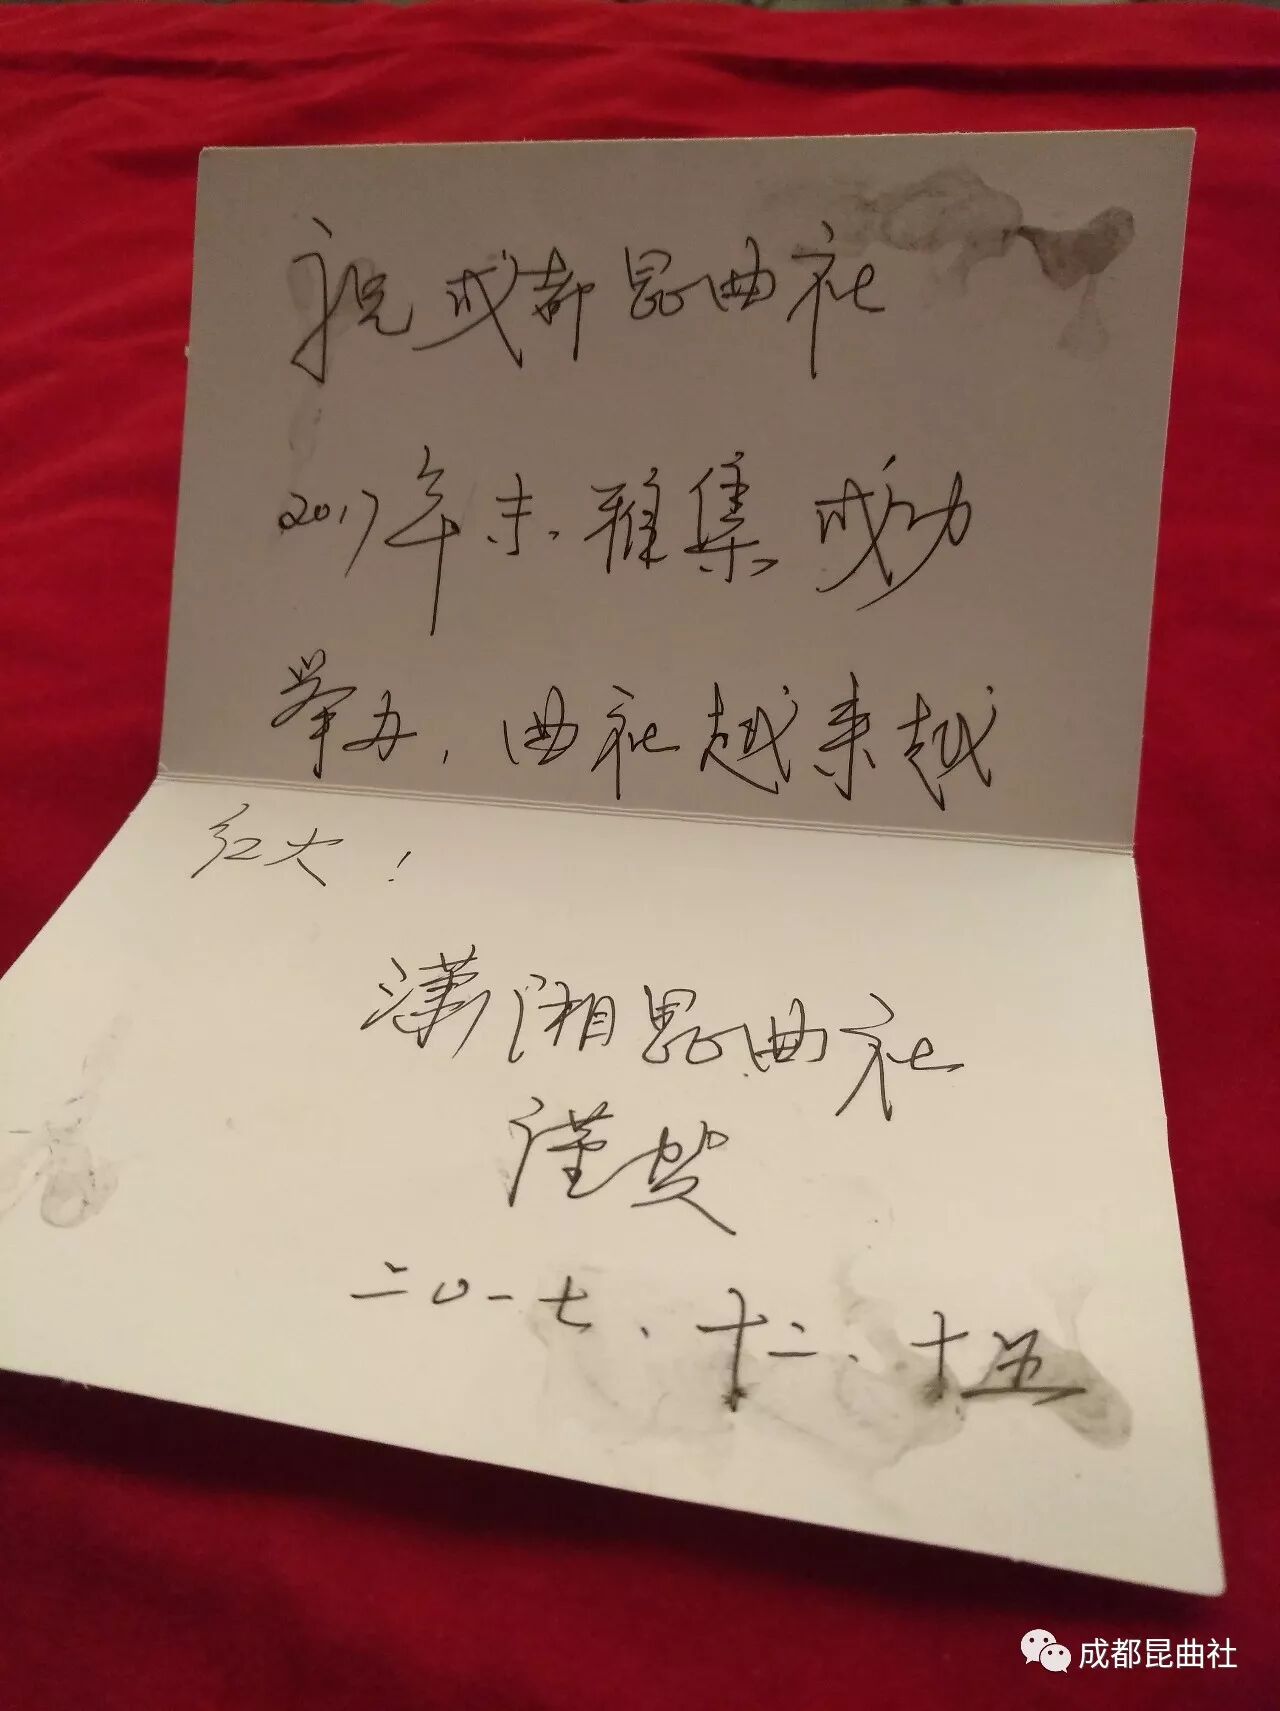 祝成都昆曲社
2017年末雅集成功
举办,曲社越来越
红火!
潇湘昆曲社
谨贺
二〇一七、十二、十五
成都昆曲社